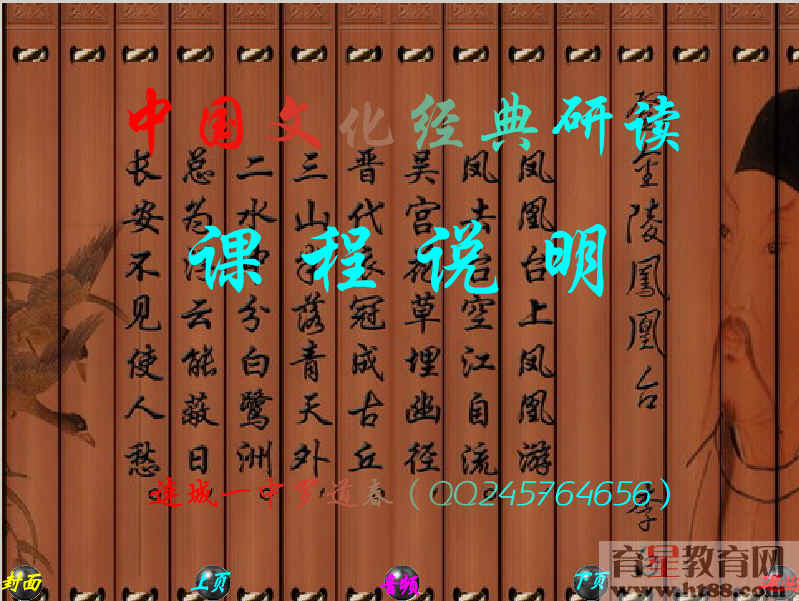 中国文化经典研读
课程说明
登金陵鳳凰台 李
凤凰台上凤凰游
凤去台空江自流
吴宫花草埋幽径
晋代衣冠成古丘
三山半落青天外
二水中分白鹭洲
总为浮云能蔽日
长安不见使人愁
连城一中罗道春（QQ245764656）
封面
上页
音频
下页
育星教育网
www.ht88.com